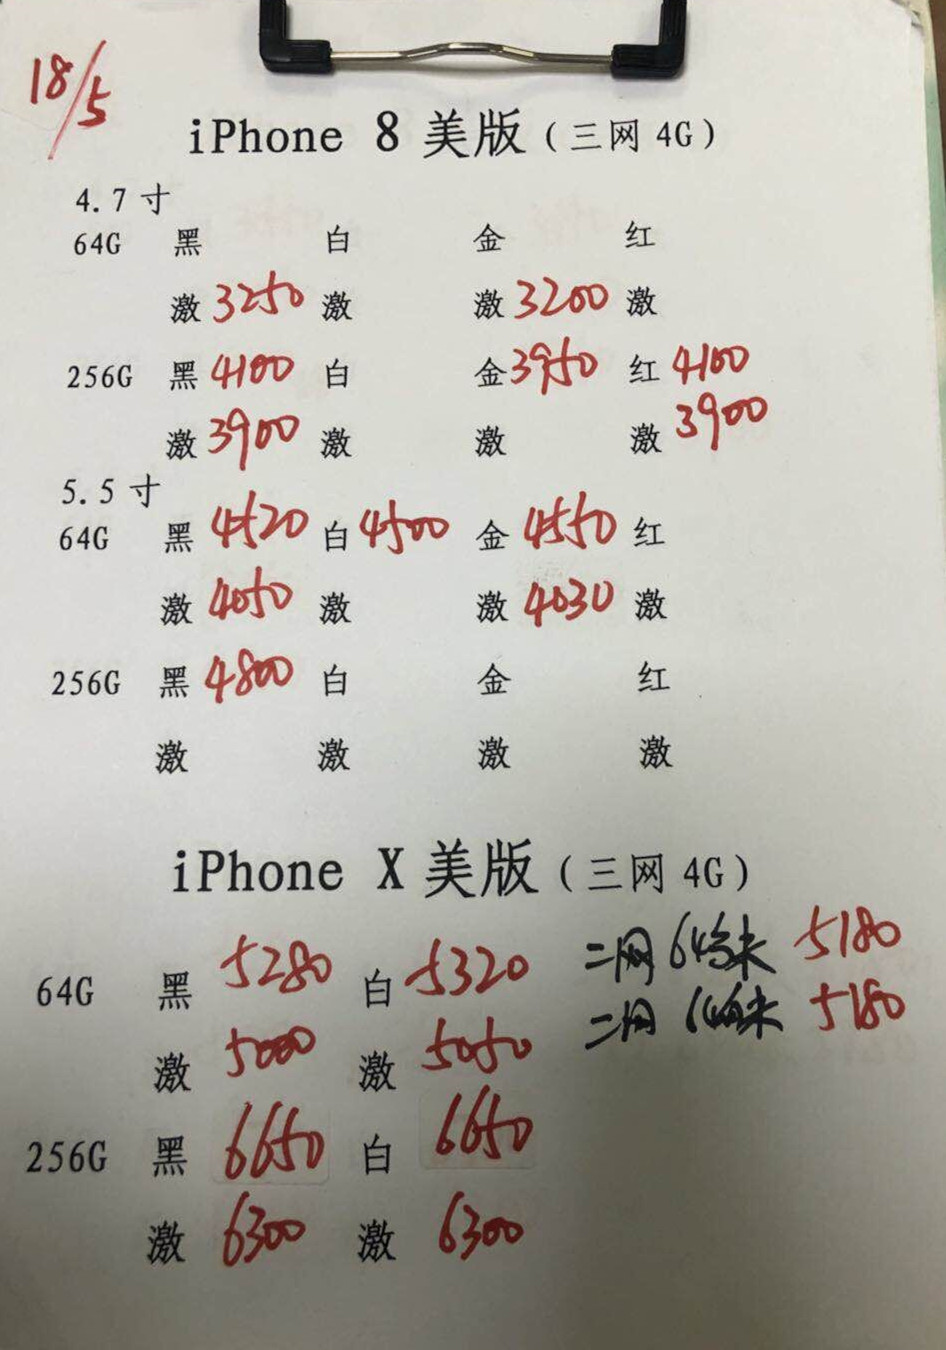 18/5
iPhone 8 美版（三网 4G）
4.7 寸
64G 黑 白 金 红
激 3250 激 激 3200 激
256G 黑 4100 白 金 3950 红 4100
激 3900 激 激 激 3900
5.5 寸
64G 黑 4520 白 4500 金 4550 红
激 4050 激 激 4030 激
256G 黑 4800 白 金 红
激 激 激 激
iPhone X 美版（三网 4G）
二网 64 未 5180
64G 黑 5280 白 5320
二网 未 5180
激 5000 激 5050
256G 黑 6650 白 6650
激 6300 激 6300